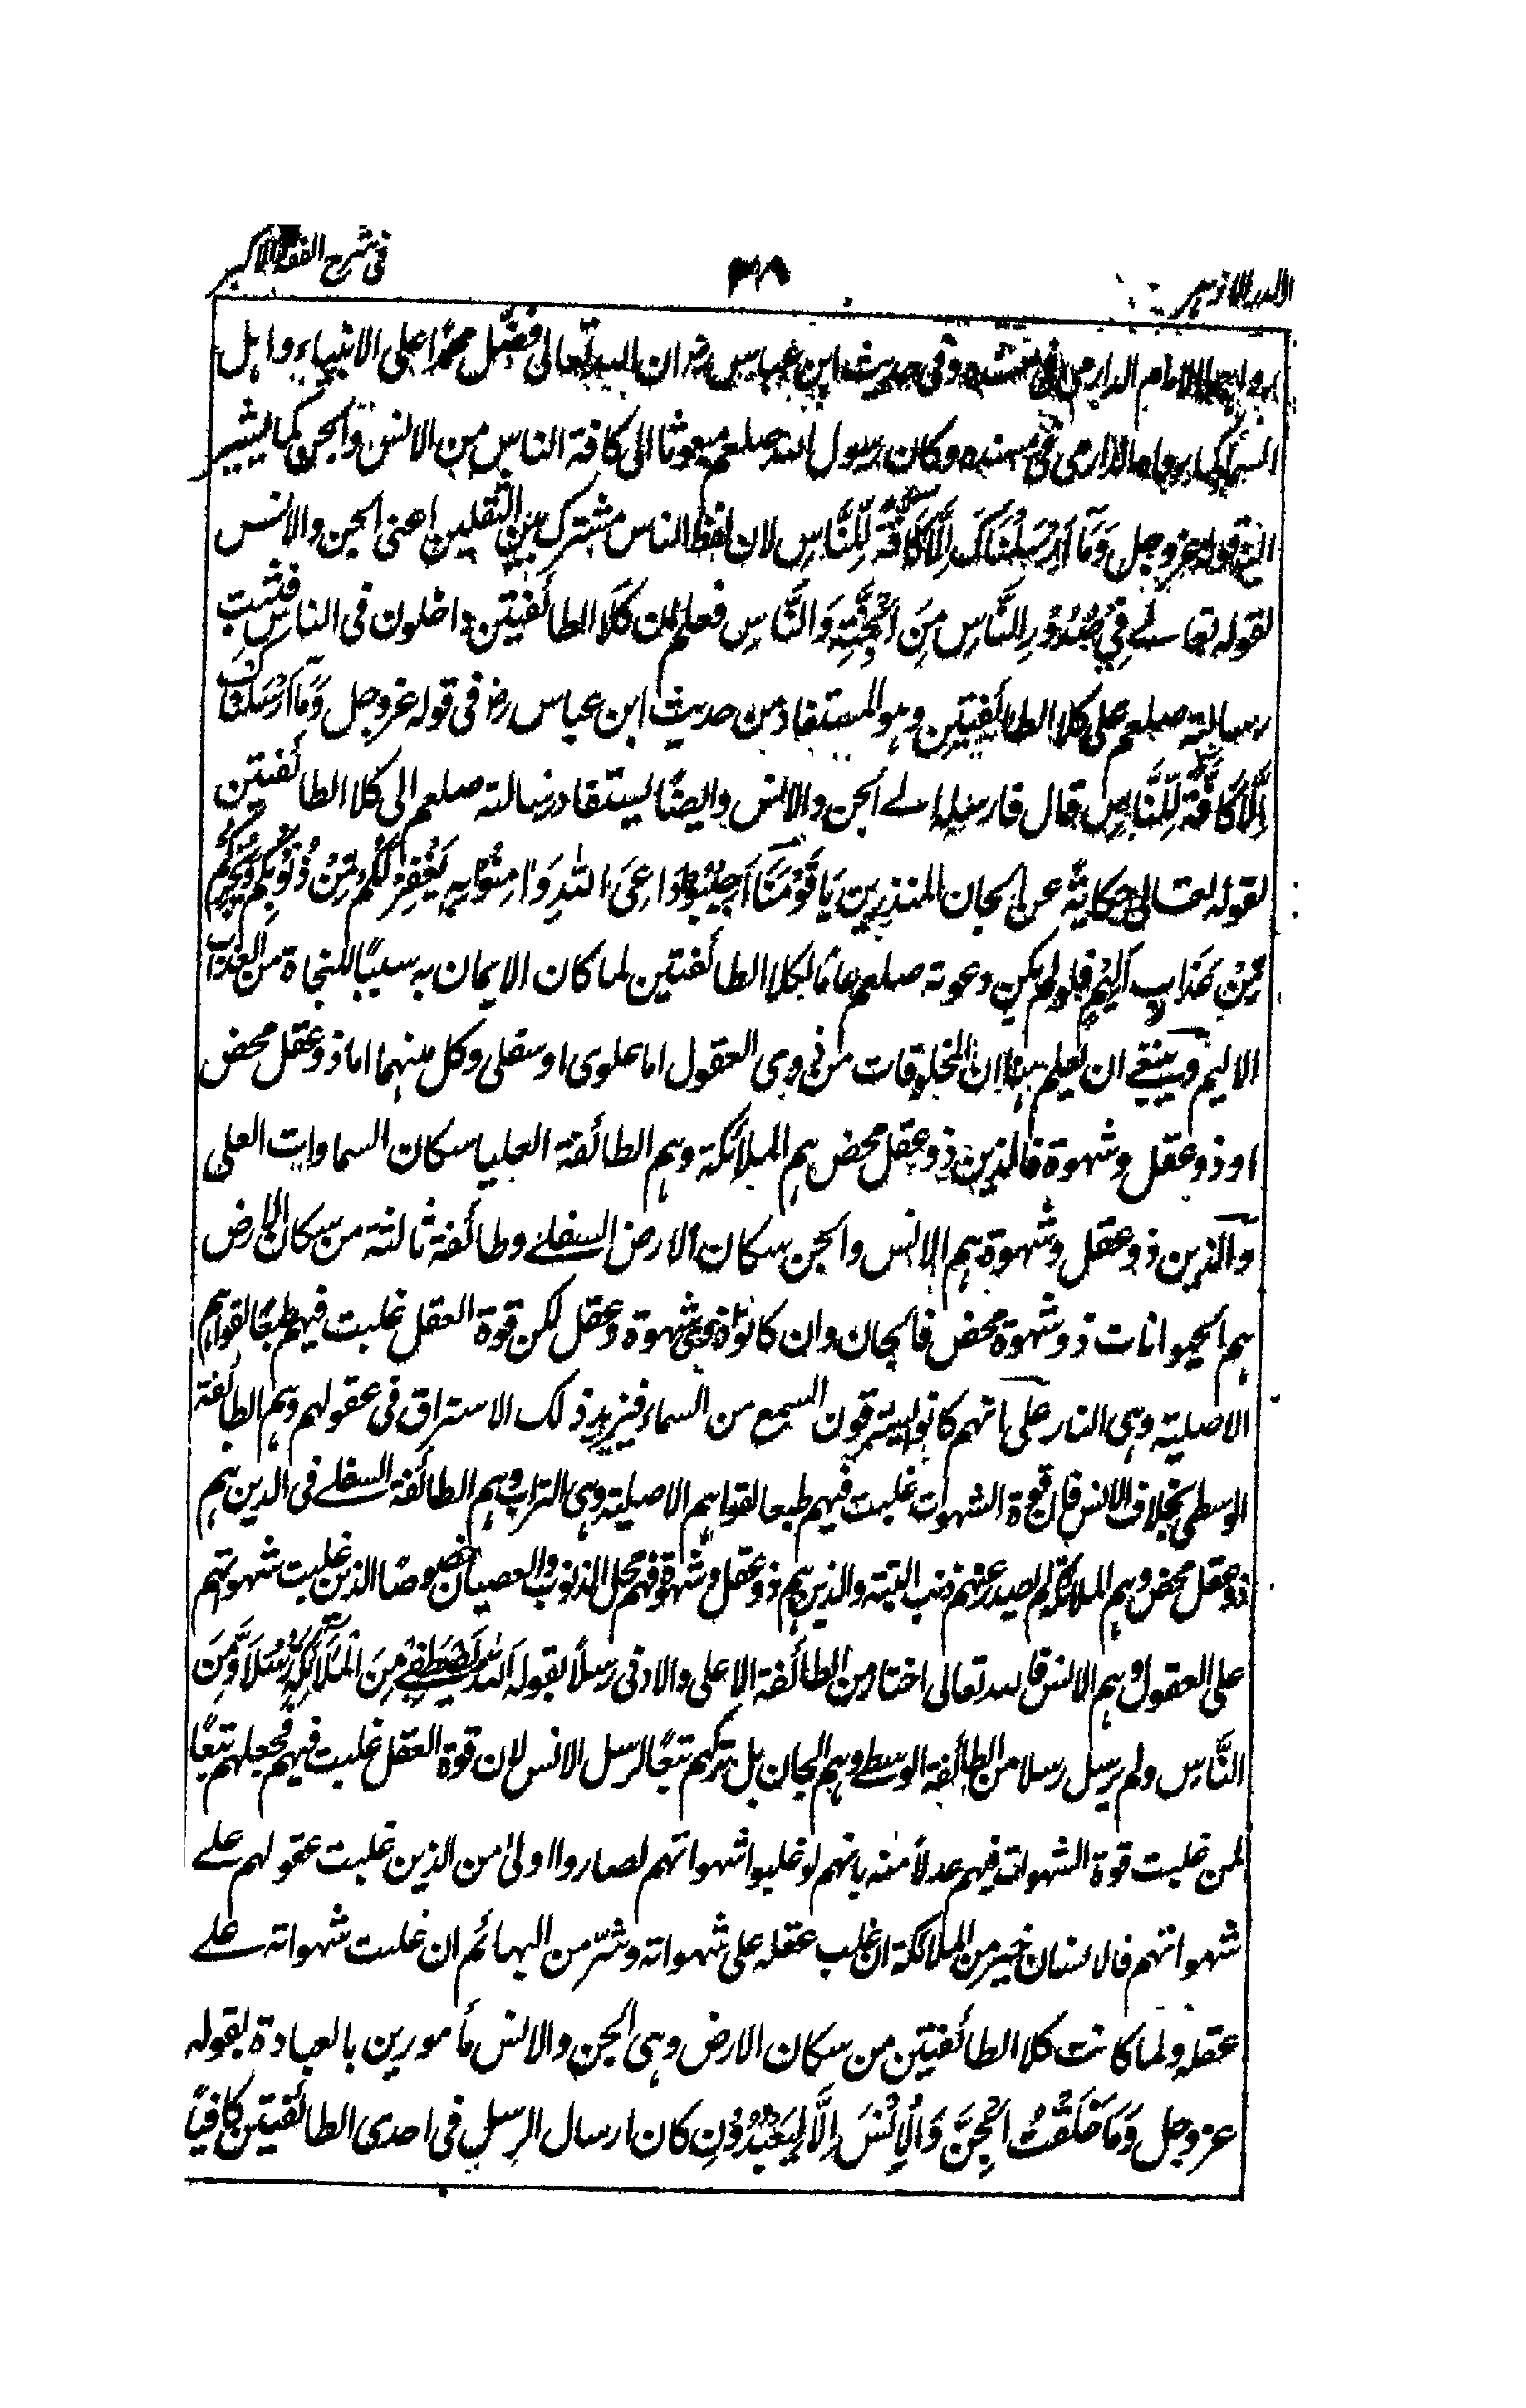 الدر الازهر ٣٨ فى شرح الفقه الاكبر
رواهما الامام الدارمى فى مسنده وفى حديث ابن عباس رض ان الله تعالى فضّل محمدًا على الانبياء واهل
السماء كما رواه الدارمى فى مسنده وكان رسول الله صلعم مبعوثا الى كافة الناس من الانس والجن كما يشير
قوله عزوجل وَمَآ أَرْسَلْنَاكَ إِلَّا كَافَّةً لِّلنَّاسِ لان لفظ الناس مشترك بين الثقلين اعنى الجن والانس
لقوله تعالے فِيْ صُدُوْرِ النَّاسِ مِنَ الْجِنَّةِ وَالنَّاسِ فعلم ان كلا الطائفيتين داخلون فى الناس فثبت
رسالته صلعم على كلا الطائفيتين وهو المستفاد من حديث ابن عباس رض فى قوله عزوجل وَمَآ اَرْسَلْنٰكَ
اِلَّا كَافَّةً لِّلنَّاسِ قال فارسله الے الجن والانس وايضًا يستفاد رسالته صلعم الى كلا الطائفتين
لقوله تعالى حكايةً عن الجان المنذرين يَا قَوْمَنَا اَجِيْبُوْا دَاعِىَ اللهِ وَاٰمِنُوْا بِهٖ يَغْفِرْ لَكُمْ مِّنْ ذُنُوْبِكُمْ وَيُجِرْكُمْ
مِّنْ عَذَابٍ اَلِيْمٍ فلو لم يكن دعوته صلعم عامًا لكلا الطائفتين لما كان الايمان به سببًا للنجاة من العذاب
الاليم وينبغے ان يعلم ههنا ان المخلوقات من ذوى العقول اما علوى او سفلى وكل منهما اما ذو عقل محض
او ذو عقل وشهوة فالذين ذو عقل محض هم الملائكة وهم الطائفة العليا سكان السماوات العلى
والذين ذو عقل وشهوة هم الانس والجن سكان الارض السفلے وطائفة ثالثة من سكان الارض
هم الحيوانات ذو شهوة محض فالجان وان كانوا ذوى شهوة وعقل لكن قوة العقل غلبت فيهم طبعًا لقواهم
الاصلية وهى النار على انهم كانوا يسترقون السمع من السماء فيزيد ذلك الاستراق فى عقولهم وهم الطائفة
الوسطى بخلاف الانس فان قوة الشهوات غلبت فيهم طبعا لقواهم الاصلية وهى التراب وهم الطائفة السفلے فى الدين هم
ذو عقل محض وهم الملائكة لم يصدر عنهم ذنب البتة والذين هم ذو عقل وشهوة فهم محل الذنوب والعصيان خصوصًا الذين غلبت شهوتهم
على العقول وهم الانس فالله تعالى اختار من الطائفة الاعلى والادنى رسلًا بقوله اَللهُ يَصْطَفِيْ مِنَ الْمَلَآئِكَةِ رُسُلًا وَّمِنَ
النَّاسِ ولم يرسل رسلا من الطائفة الوسطے وهم الجان بل تركهم تبعًا لرسل الانس لان قوة العقل غلبت فيهم فجعلهم تبعًا
لمن غلبت قوة الشهوات فيهم عدلًا منه بانهم لو غلبوا شهواتهم لصاروا اولىٰ من الذين غلبت عقولهم علے
شهواتهم فالانسان خير من الملائكة ان غلب عقله على شهواته وشرّ من البهائم ان غلبت شهواته علے
عقله ولما كانت كلا الطائفيتين من سكان الارض وهى الجن والانس مأمورين بالعبادة لقوله
عزوجل وَمَا خَلَقْتُ الْجِنَّ وَالْاِنْسَ اِلَّا لِيَعْبُدُوْنِ كان ارسال الرسل فى احدى الطائفيتين كافيًا